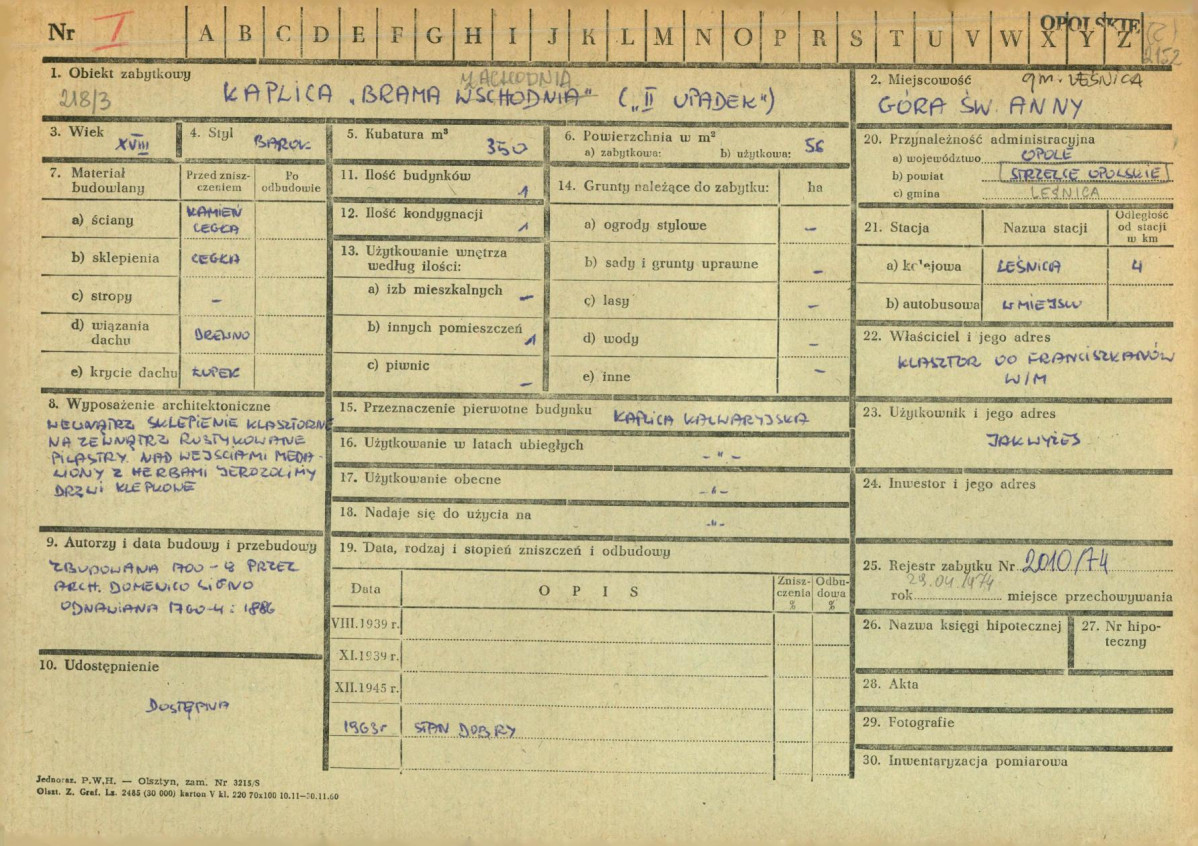 Nr I A B C D E F G H I J K L M N O P R S T U V W X Y Z
OPOLSKIE
2152
1. Obiekt zabytkowy
218/3
ZACHODNIA
KAPLICA „BRAMA WSCHODNIA" („II UPADEK")
2. Miejscowość gm. LEŚNICA
GÓRA ŚW. ANNY
3. Wiek
XVIII
4. Styl
BAROK
5. Kubatura m³
350
6. Powierzchnia w m²
a) zabytkowa: b) użytkowa: 56
7. Materiał budowlany
Przed zniszczeniem
Po odbudowie
a) ściany KAMIEŃ
CEGŁA
b) sklepienia CEGŁA
c) stropy –
d) wiązania dachu DREWNO
e) krycie dachu ŁUPEK
8. Wyposażenie architektoniczne
WEWNĄTRZ SKLEPIENIE KLASZTORNE
NA ZEWNĄTRZ RUSTYKOWANE
PILASTRY. NAD WEJŚCIAMI MEDA-
LIONY Z HERBAMI JEROZOLIMY
DRZWI KLEPKOWE
9. Autorzy i data budowy i przebudowy
ZBUDOWANA 1700-9 PRZEZ
ARCH. DOMENICO SIGNO
ODNAWIANA 1760-4 i 1886
10. Udostępnienie
DOSTĘPNA
11. Ilość budynków
1
12. Ilość kondygnacji
1
13. Użytkowanie wnętrza
według ilości:
a) izb mieszkalnych –
b) innych pomieszczeń 1
c) piwnic –
14. Grunty należące do zabytku: ha
a) ogrody stylowe –
b) sady i grunty uprawne –
c) lasy –
d) wody –
e) inne –
15. Przeznaczenie pierwotne budynku KAPLICA KALWARYJSKA
16. Użytkowanie w latach ubiegłych – " –
17. Użytkowanie obecne – " –
18. Nadaje się do użycia na – " –
19. Data, rodzaj i stopień zniszczeń i odbudowy
Data OPIS Zniszczenia % Odbudowa %
VIII.1939 r.
XI.1939 r.
XII.1945 r.
1963r STAN DOBRY
20. Przynależność administracyjna
a) województwo OPOLE
b) powiat STRZELCE OPOLSKIE
c) gmina LEŚNICA
21. Stacja Nazwa stacji Odległość od stacji w km
a) kolejowa LEŚNICA 4
b) autobusowa W MIEJSCU
22. Właściciel i jego adres
KLASZTOR OO FRANCISZKANÓW
W/M
23. Użytkownik i jego adres
JAK WYŻEJ
24. Inwestor i jego adres
25. Rejestr zabytku Nr 2010/74
rok 29.04.1974 miejsce przechowywania
26. Nazwa księgi hipotecznej
27. Nr hipoteczny
28. Akta
29. Fotografie
30. Inwentaryzacja pomiarowa
Jednoraz. P.W.H. — Olsztyn, zam. Nr 3215/S
Olszt. Z. Graf. Lz. 2485 (30 000) karton V kl. 220 70x100 10.11—30.11.60